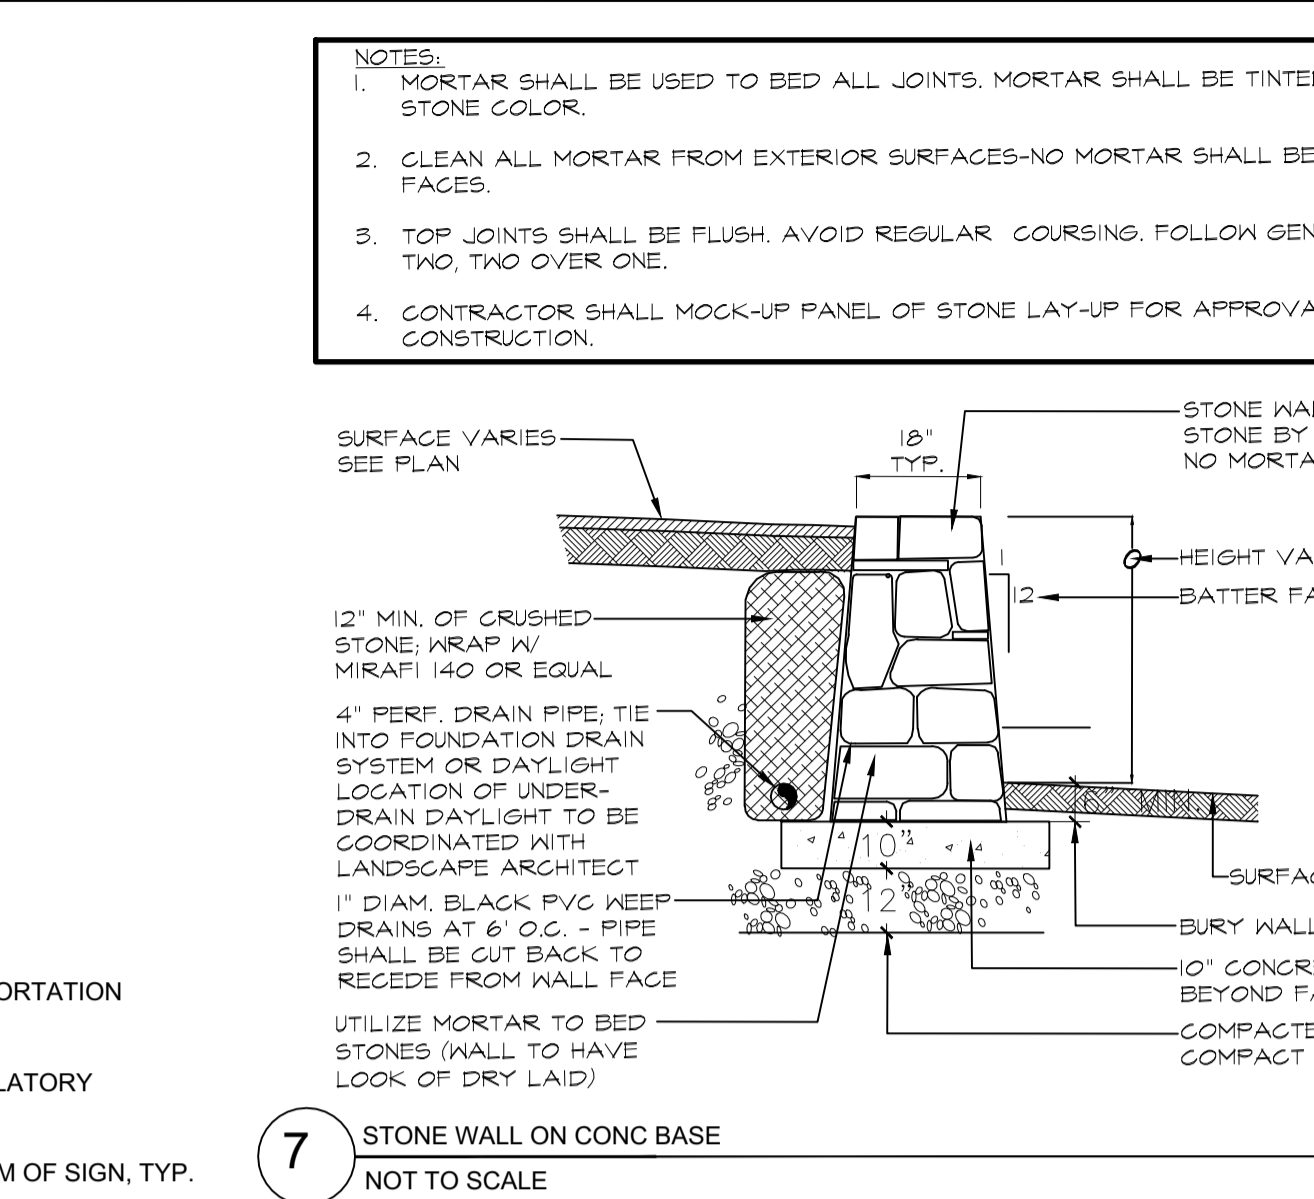 NOTES:
1. MORTAR SHALL BE USED TO BED ALL JOINTS. MORTAR SHALL BE TINTE
STONE COLOR.
2. CLEAN ALL MORTAR FROM EXTERIOR SURFACES-NO MORTAR SHALL BE
FACES.
3. TOP JOINTS SHALL BE FLUSH. AVOID REGULAR COURSING. FOLLOW GEN
TWO, TWO OVER ONE.
4. CONTRACTOR SHALL MOCK-UP PANEL OF STONE LAY-UP FOR APPROVA
CONSTRUCTION.
SURFACE VARIES
SEE PLAN
18"
TYP.
STONE WAL
STONE BY
NO MORTA
1
12
HEIGHT VA
BATTER FA
12" MIN. OF CRUSHED
STONE; WRAP W/
MIRAFI 140 OR EQUAL
4" PERF. DRAIN PIPE; TIE
INTO FOUNDATION DRAIN
SYSTEM OR DAYLIGHT
LOCATION OF UNDER-
DRAIN DAYLIGHT TO BE
COORDINATED WITH
LANDSCAPE ARCHITECT
1" DIAM. BLACK PVC WEEP
DRAINS AT 6' O.C. - PIPE
SHALL BE CUT BACK TO
RECEDE FROM WALL FACE
UTILIZE MORTAR TO BED
STONES (WALL TO HAVE
LOOK OF DRY LAID)
6" MIN.
10"
12"
SURFAC
BURY WALL
10" CONCRE
BEYOND FA
COMPACTE
COMPACT
ORTATION
LATORY
M OF SIGN, TYP.
7
STONE WALL ON CONC BASE
NOT TO SCALE